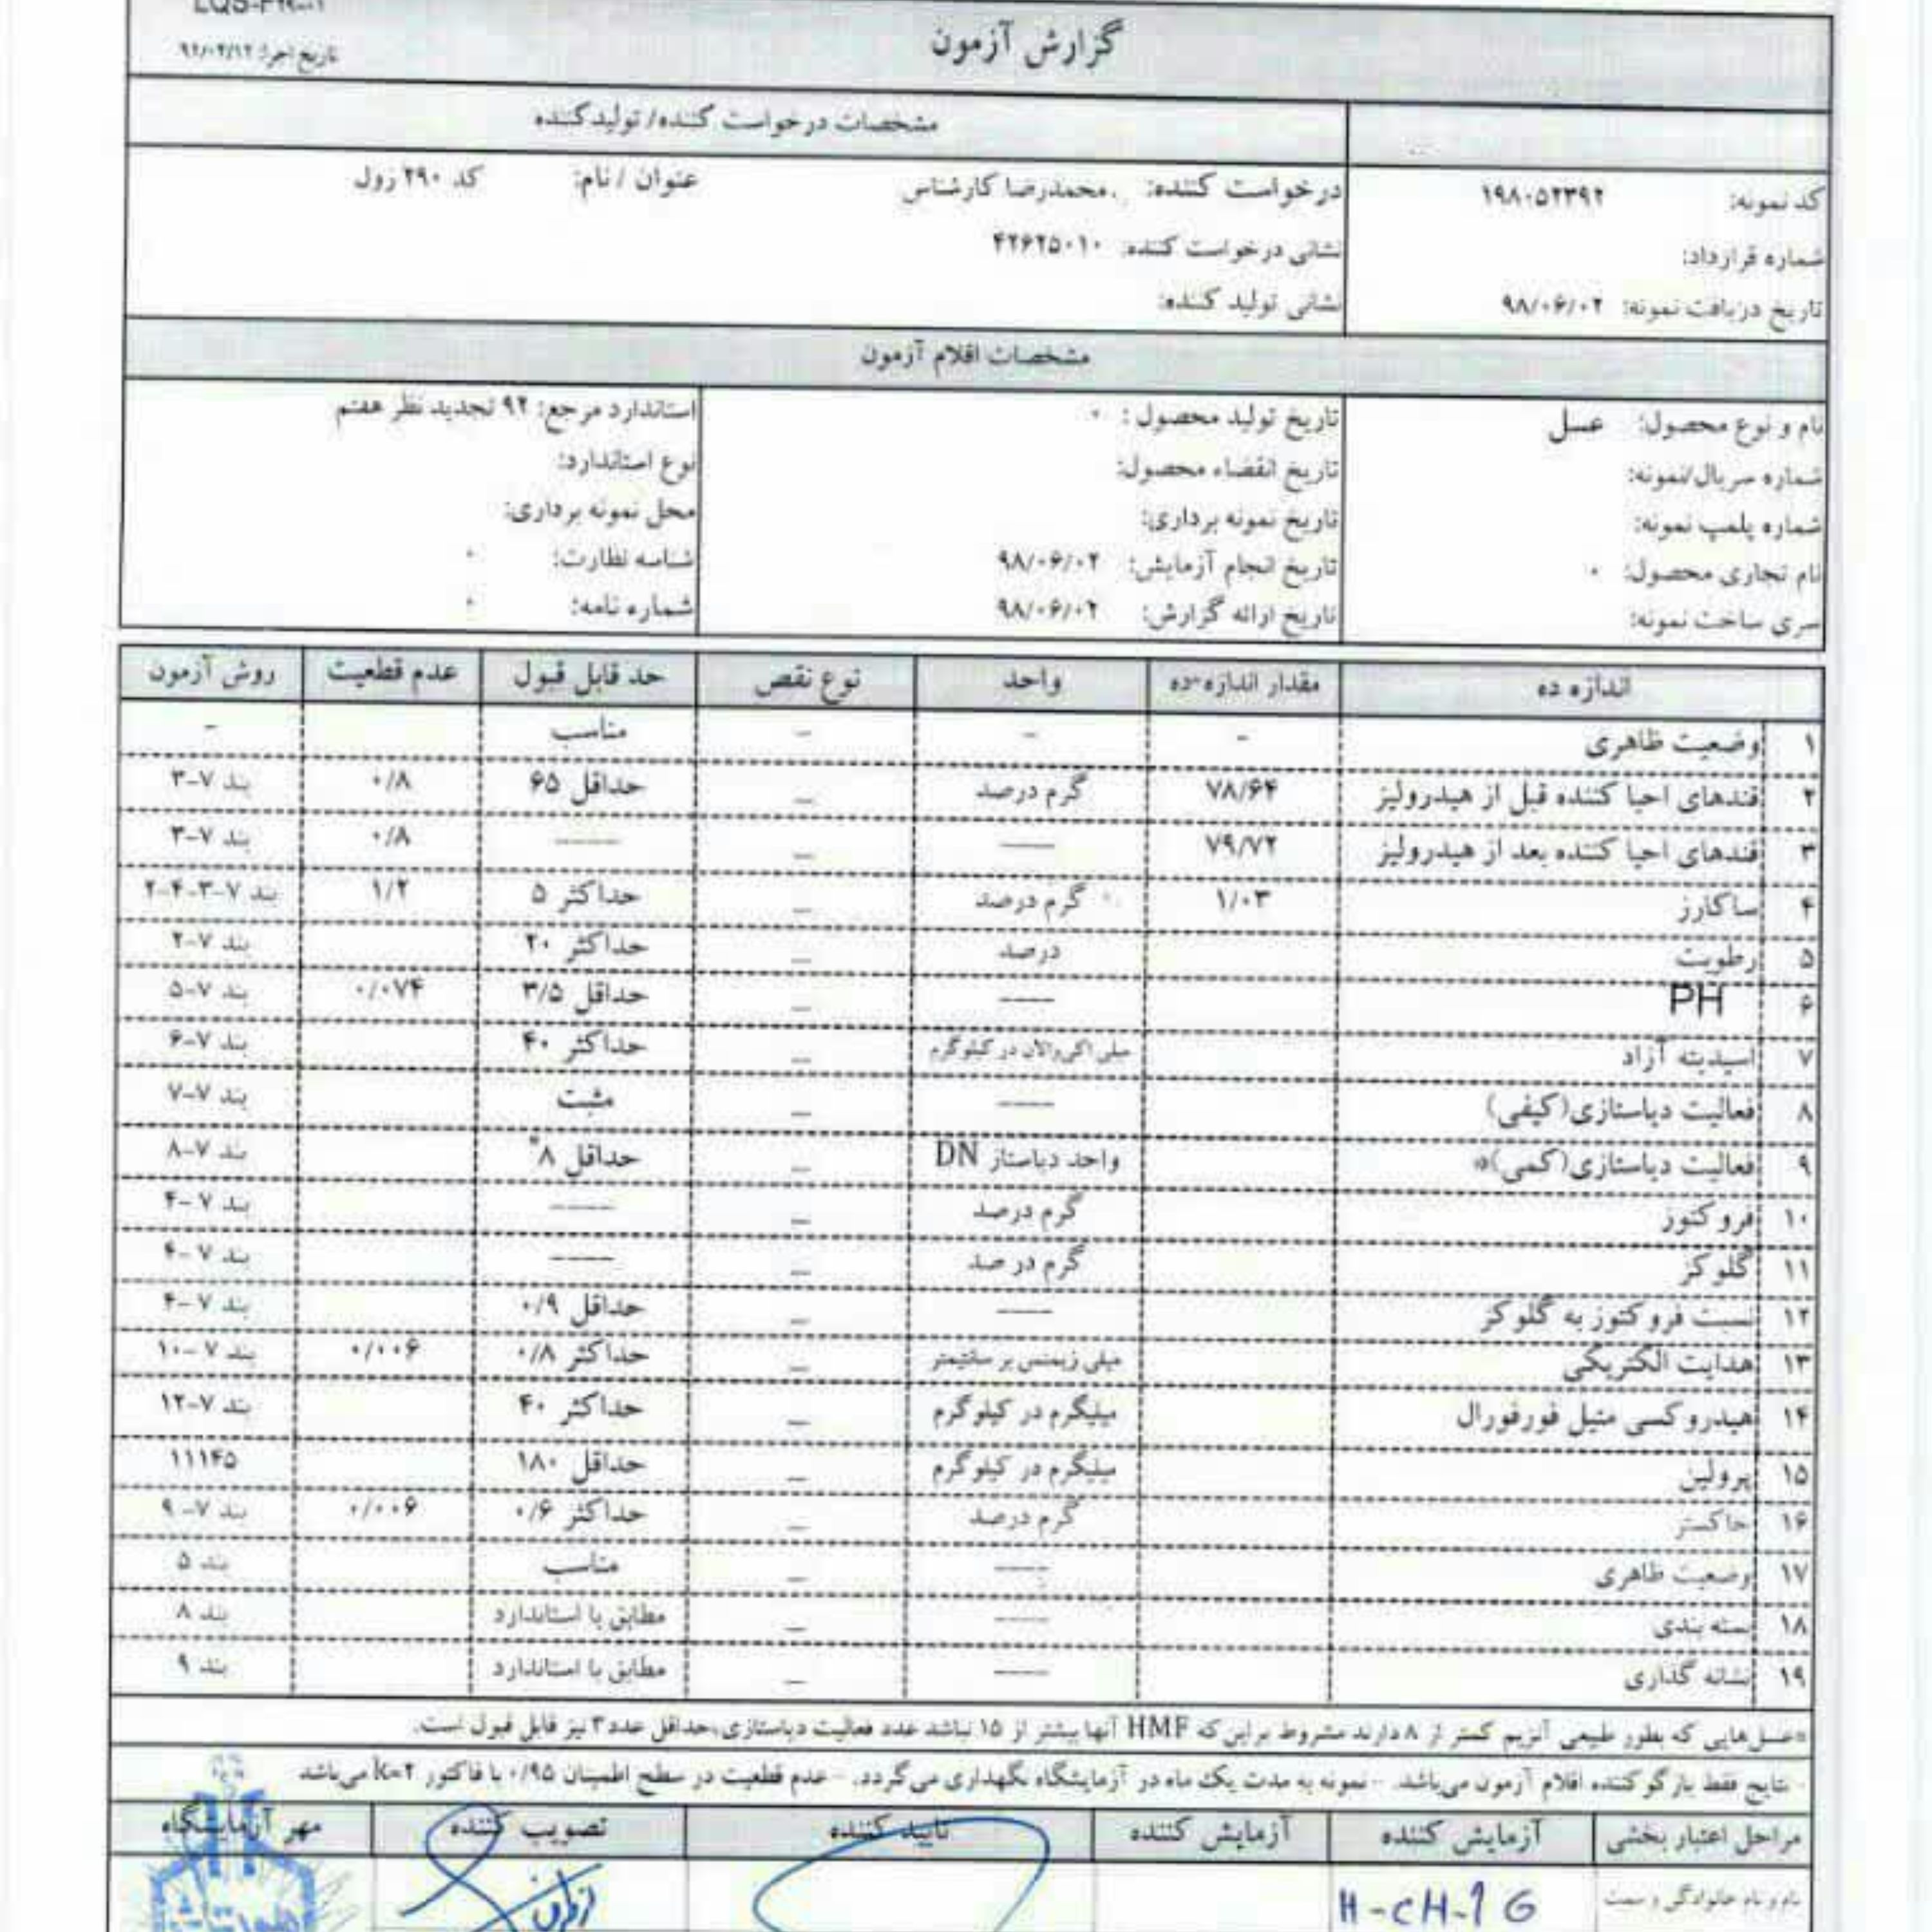 گزارش آزمون
تاریخ اجرا: ۹۲/۰۲/۱۲
مشخصات درخواست کننده/ تولیدکننده
کد نمونه: ۱۹۸۰۵۲۳۹۲
شماره قرارداد:
تاریخ دریافت نمونه: ۹۸/۰۶/۰۲
درخواست کننده: محمدرضا کارشناس
عنوان / نام: کد ۲۹۰ زول
نشانی درخواست کننده: ۴۲۶۲۵۰۱۰
نشانی تولید کننده:
مشخصات اقلام آزمون
نام و نوع محصول: عسل
شماره سریال/نمونه:
شماره پلمپ نمونه:
نام تجاری محصول: ۰
سری ساخت نمونه:
تاریخ تولید محصول : ۰
تاریخ انقضاء محصول:
تاریخ نمونه برداری:
تاریخ انجام آزمایش: ۹۸/۰۶/۰۲
تاریخ ارائه گزارش: ۹۸/۰۶/۰۲
استاندارد مرجع: ۹۲ تجدید نظر هفتم
نوع استاندارد:
محل نمونه برداری:
شناسه نظارت: ۰
شماره نامه: ۰
اندازه ده مقدار اندازه ده واحد نوع نقص حد قابل قبول عدم قطعیت روش آزمون
۱ وضعیت ظاهری - - - مناسب -
۲ قندهای احیا کننده قبل از هیدرولیز ۷۸/۶۴ گرم درصد _ حداقل ۶۵ ۰/۸ بند ۷-۳
۳ قندهای احیا کننده بعد از هیدرولیز ۷۹/۷۲ ---- _ ----- ۰/۸ بند ۷-۳
۴ ساکارز ۱/۰۳ گرم درصد _ حداکثر ۵ ۱/۲ بند ۷-۳-۴-۲
۵ رطوبت درصد _ حداکثر ۲۰ بند ۷-۲
۶ PH ---- _ حداقل ۳/۵ ۰/۰۷۴ بند ۷-۵
۷ اسیدیته آزاد میلی اکی والان در کیلوگرم _ حداکثر ۴۰ بند ۷-۶
۸ فعالیت دیاستازی(کیفی) ---- _ مثبت بند ۷-۷
۹ فعالیت دیاستازی(کمی)* واحد دیاستاز DN _ حداقل ۸* بند ۷-۸
۱۰ فروکتوز گرم درصد _ ----- بند ۷-۴
۱۱ گلوکز گرم درصد _ ----- بند ۷-۴
۱۲ نسبت فروکتوز به گلوکز ---- _ حداقل ۰/۹ بند ۷-۴
۱۳ هدایت الکتریکی میلی زیمنس بر سانتیمتر _ حداکثر ۰/۸ ۰/۰۰۶ بند ۷-۱۰
۱۴ هیدروکسی متیل فورفورال میلیگرم در کیلوگرم _ حداکثر ۴۰ بند ۷-۱۲
۱۵ پرولین میلیگرم در کیلوگرم _ حداقل ۱۸۰ ۱۱۱۴۵
۱۶ خاکستر گرم درصد _ حداکثر ۰/۶ ۰/۰۰۶ بند ۷-۹
۱۷ وضعیت ظاهری ---- _ مناسب بند ۵
۱۸ بسته بندی ---- _ مطابق با استاندارد بند ۸
۱۹ نشانه گذاری ---- _ مطابق با استاندارد بند ۹
*عسل هایی که بطور طبیعی آنزیم کمتر از ۸ دارند مشروط براین که HMF آنها بیشتر از ۱۵ نباشد عدد فعالیت دیاستازی،حداقل عدد۳ نیز قابل قبول است.
- نتایج فقط بازگو کننده اقلام آزمون می‌باشد. - نمونه به مدت یک ماه در آزمایشگاه نگهداری می‌گردد. - عدم قطعیت در سطح اطمینان ۰/۹۵ با فاکتور k=۲ می‌باشد
مراحل اعتبار بخشی آزمایش کننده آزمایش کننده تایید کننده تصویب کننده مهر آزمایشگاه
نام و نام خانوادگی و سمت